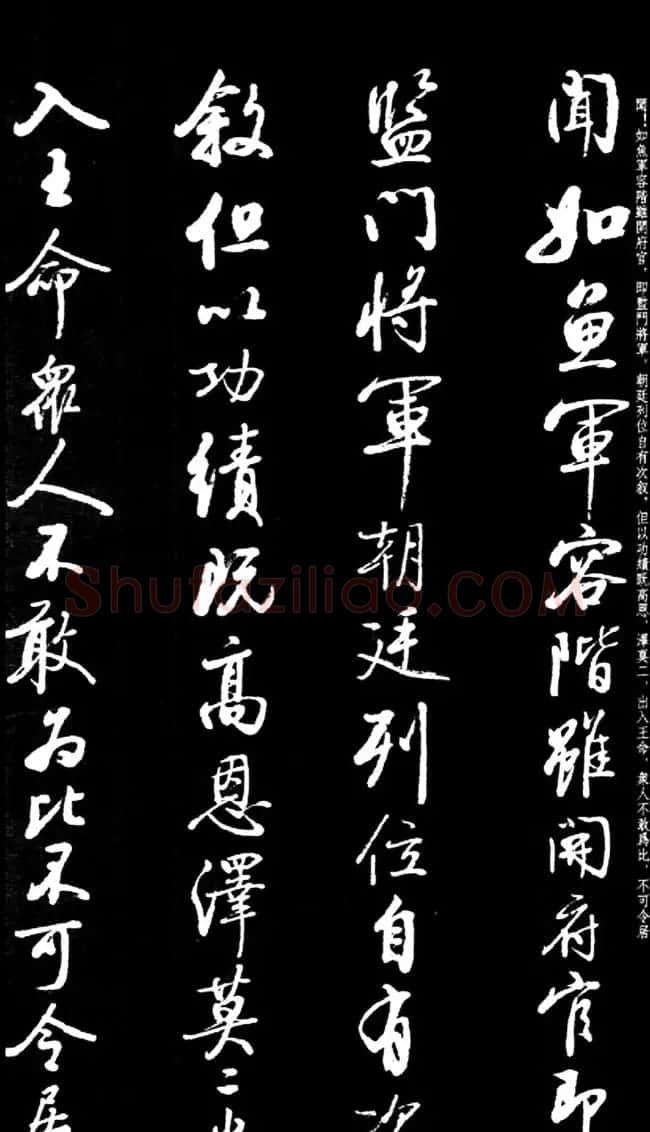 聞！如魚軍容階雖開府官，即監門將軍，朝廷列位自有次敘，但以功績既高恩，澤莫二，出入王命，衆人不敢爲比，不可令居
聞如魚軍容階雖開府官即
監門將軍朝廷列位自有次
敘但以功績既高恩澤莫二出
入王命衆人不敢为比不可令居
Shufaziliao.COM